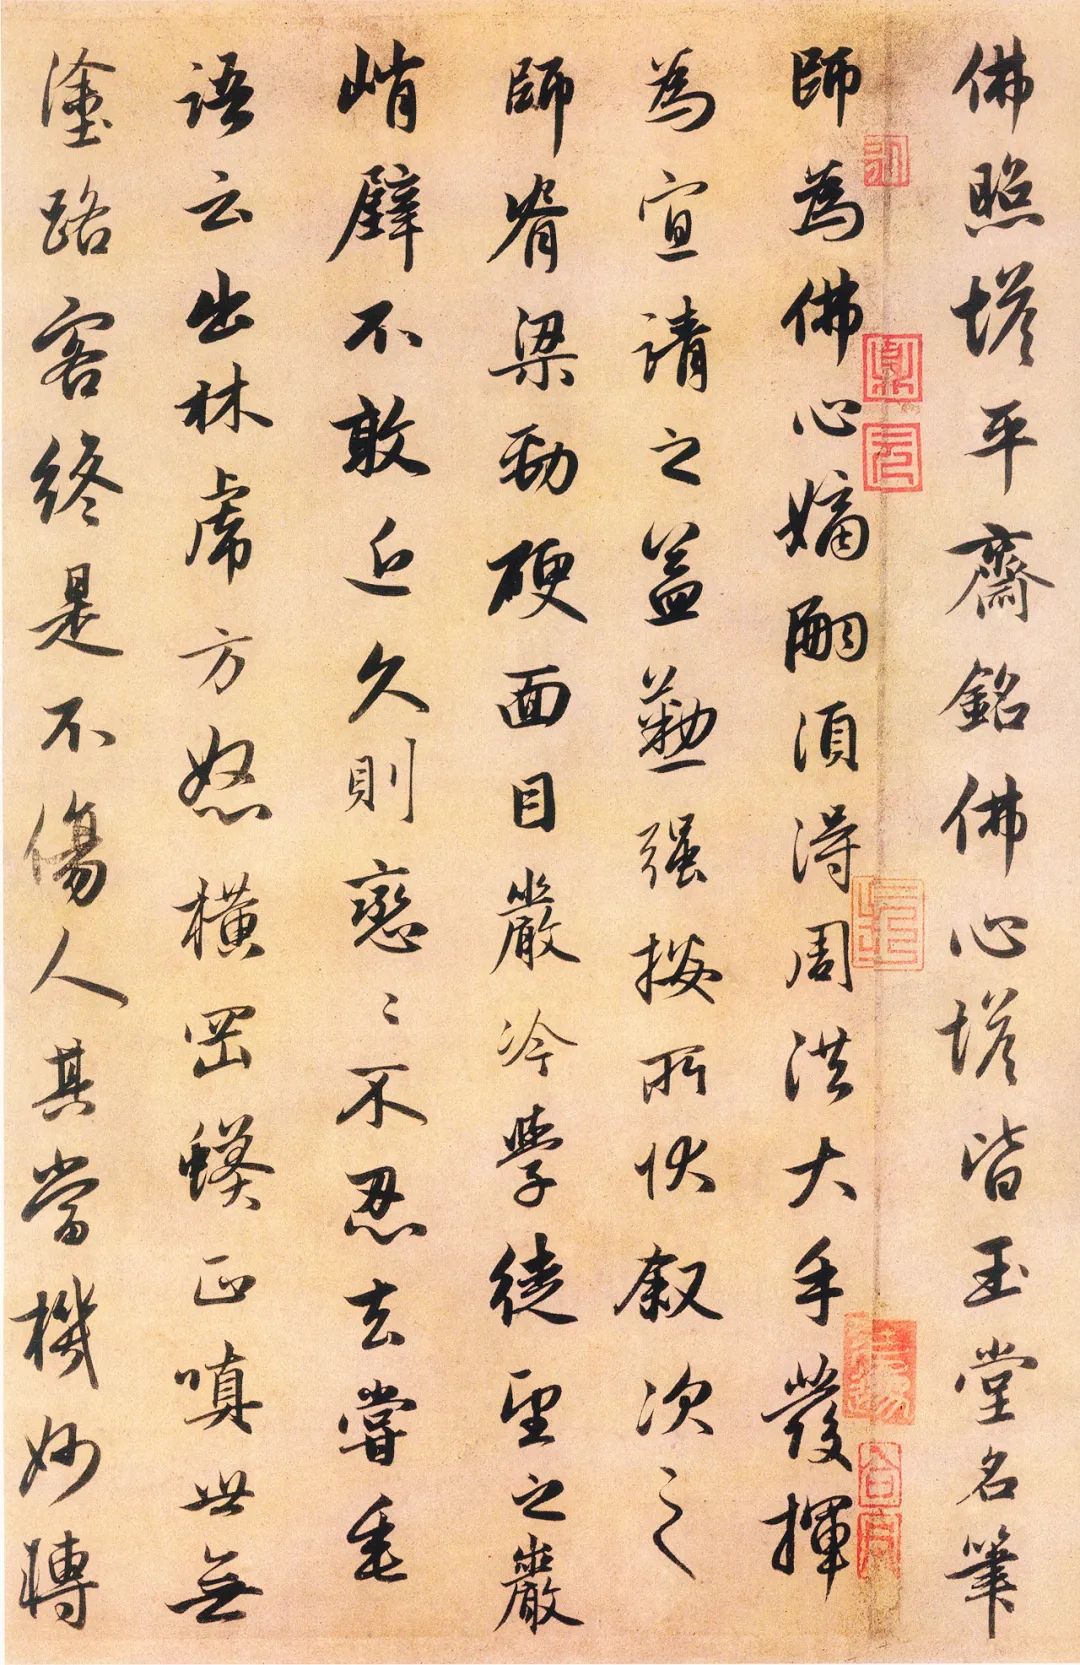 佛照塔平齋銘佛心塔皆玉堂名筆
師為佛心嫡嗣須得周洪大手發揮
為宣請之益勤强掇所伏叙次之
師脊梁勁硬面目嚴冷學徒望之巖
峭壁不敢近久則戀〻不忍去嘗垂
語云出林虎方怒橫岡蟒正嗔世無
塗路客終是不傷人其當機妙轉